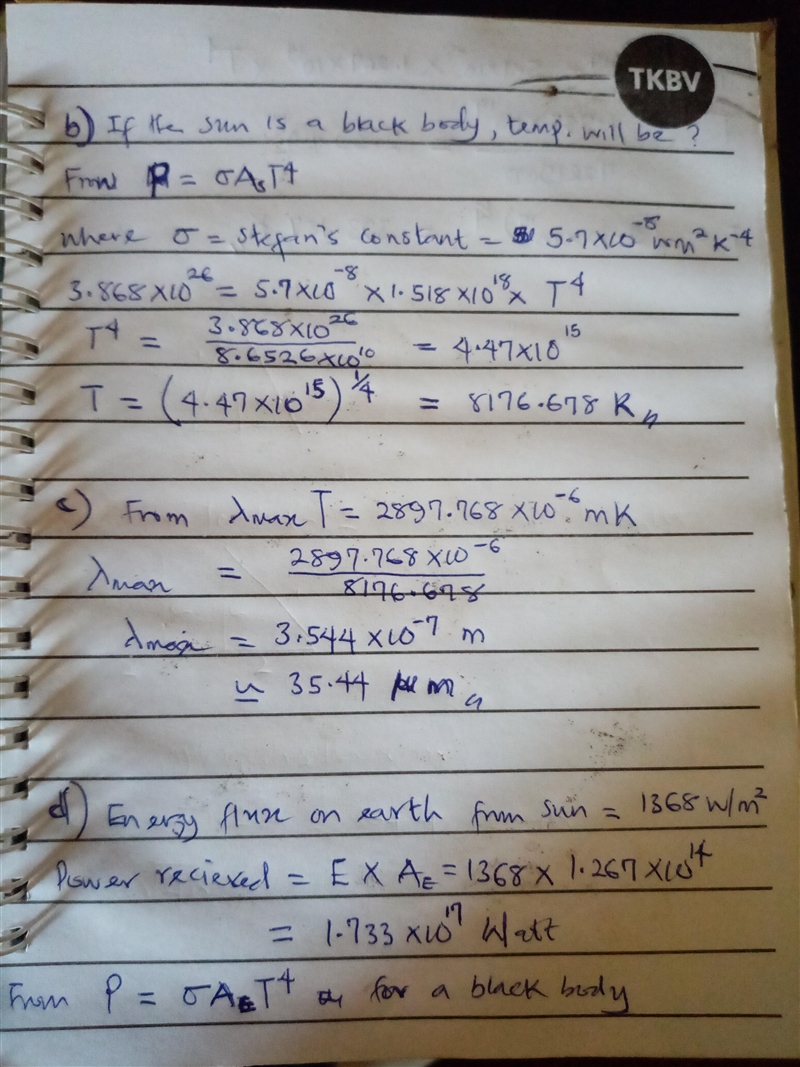 TKBV
b) If the sun is a black body, temp. will be?
From P = σAₛT⁴
where σ = stefan's constant = 5.7×10⁻⁸ wm²K⁻⁴
3.868×10²⁶ = 5.7×10⁻⁸ × 1.518×10¹⁸ × T⁴
T⁴ = 3.868×10²⁶ / 8.6526×10¹⁰ = 4.47×10¹⁵
T = (4.47×10¹⁵)^¼ = 8176.678 K
c) From λmax T = 2897.768×10⁻⁶ mK
λmax = 2897.768×10⁻⁶ / 8176.678
λmax = 3.544×10⁻⁷ m
≃ 35.44 μm
d) Energy flux on earth from sun = 1368 W/m²
Power recieved = E × A_E = 1368 × 1.267×10¹⁴
= 1.733×10¹⁷ Watt
From P = σA_ET⁴ for a black body